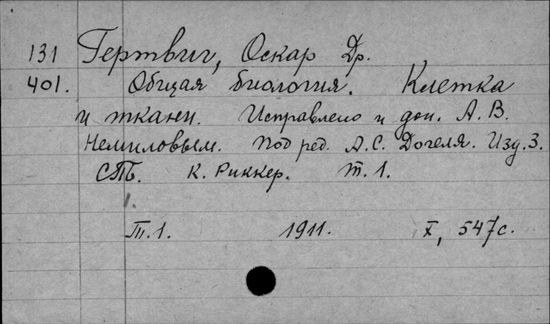 131 Гертвиг, Оскар Др.
401. Общая биология. Клетка
и ткани. Исправлено и доп. А. В.
Немиловым. Под ред. А.С. Догеля. Изд. 3.
СПб. К. Риккер. Т. 1.
1.
Т.1. 1911. X, 547с.